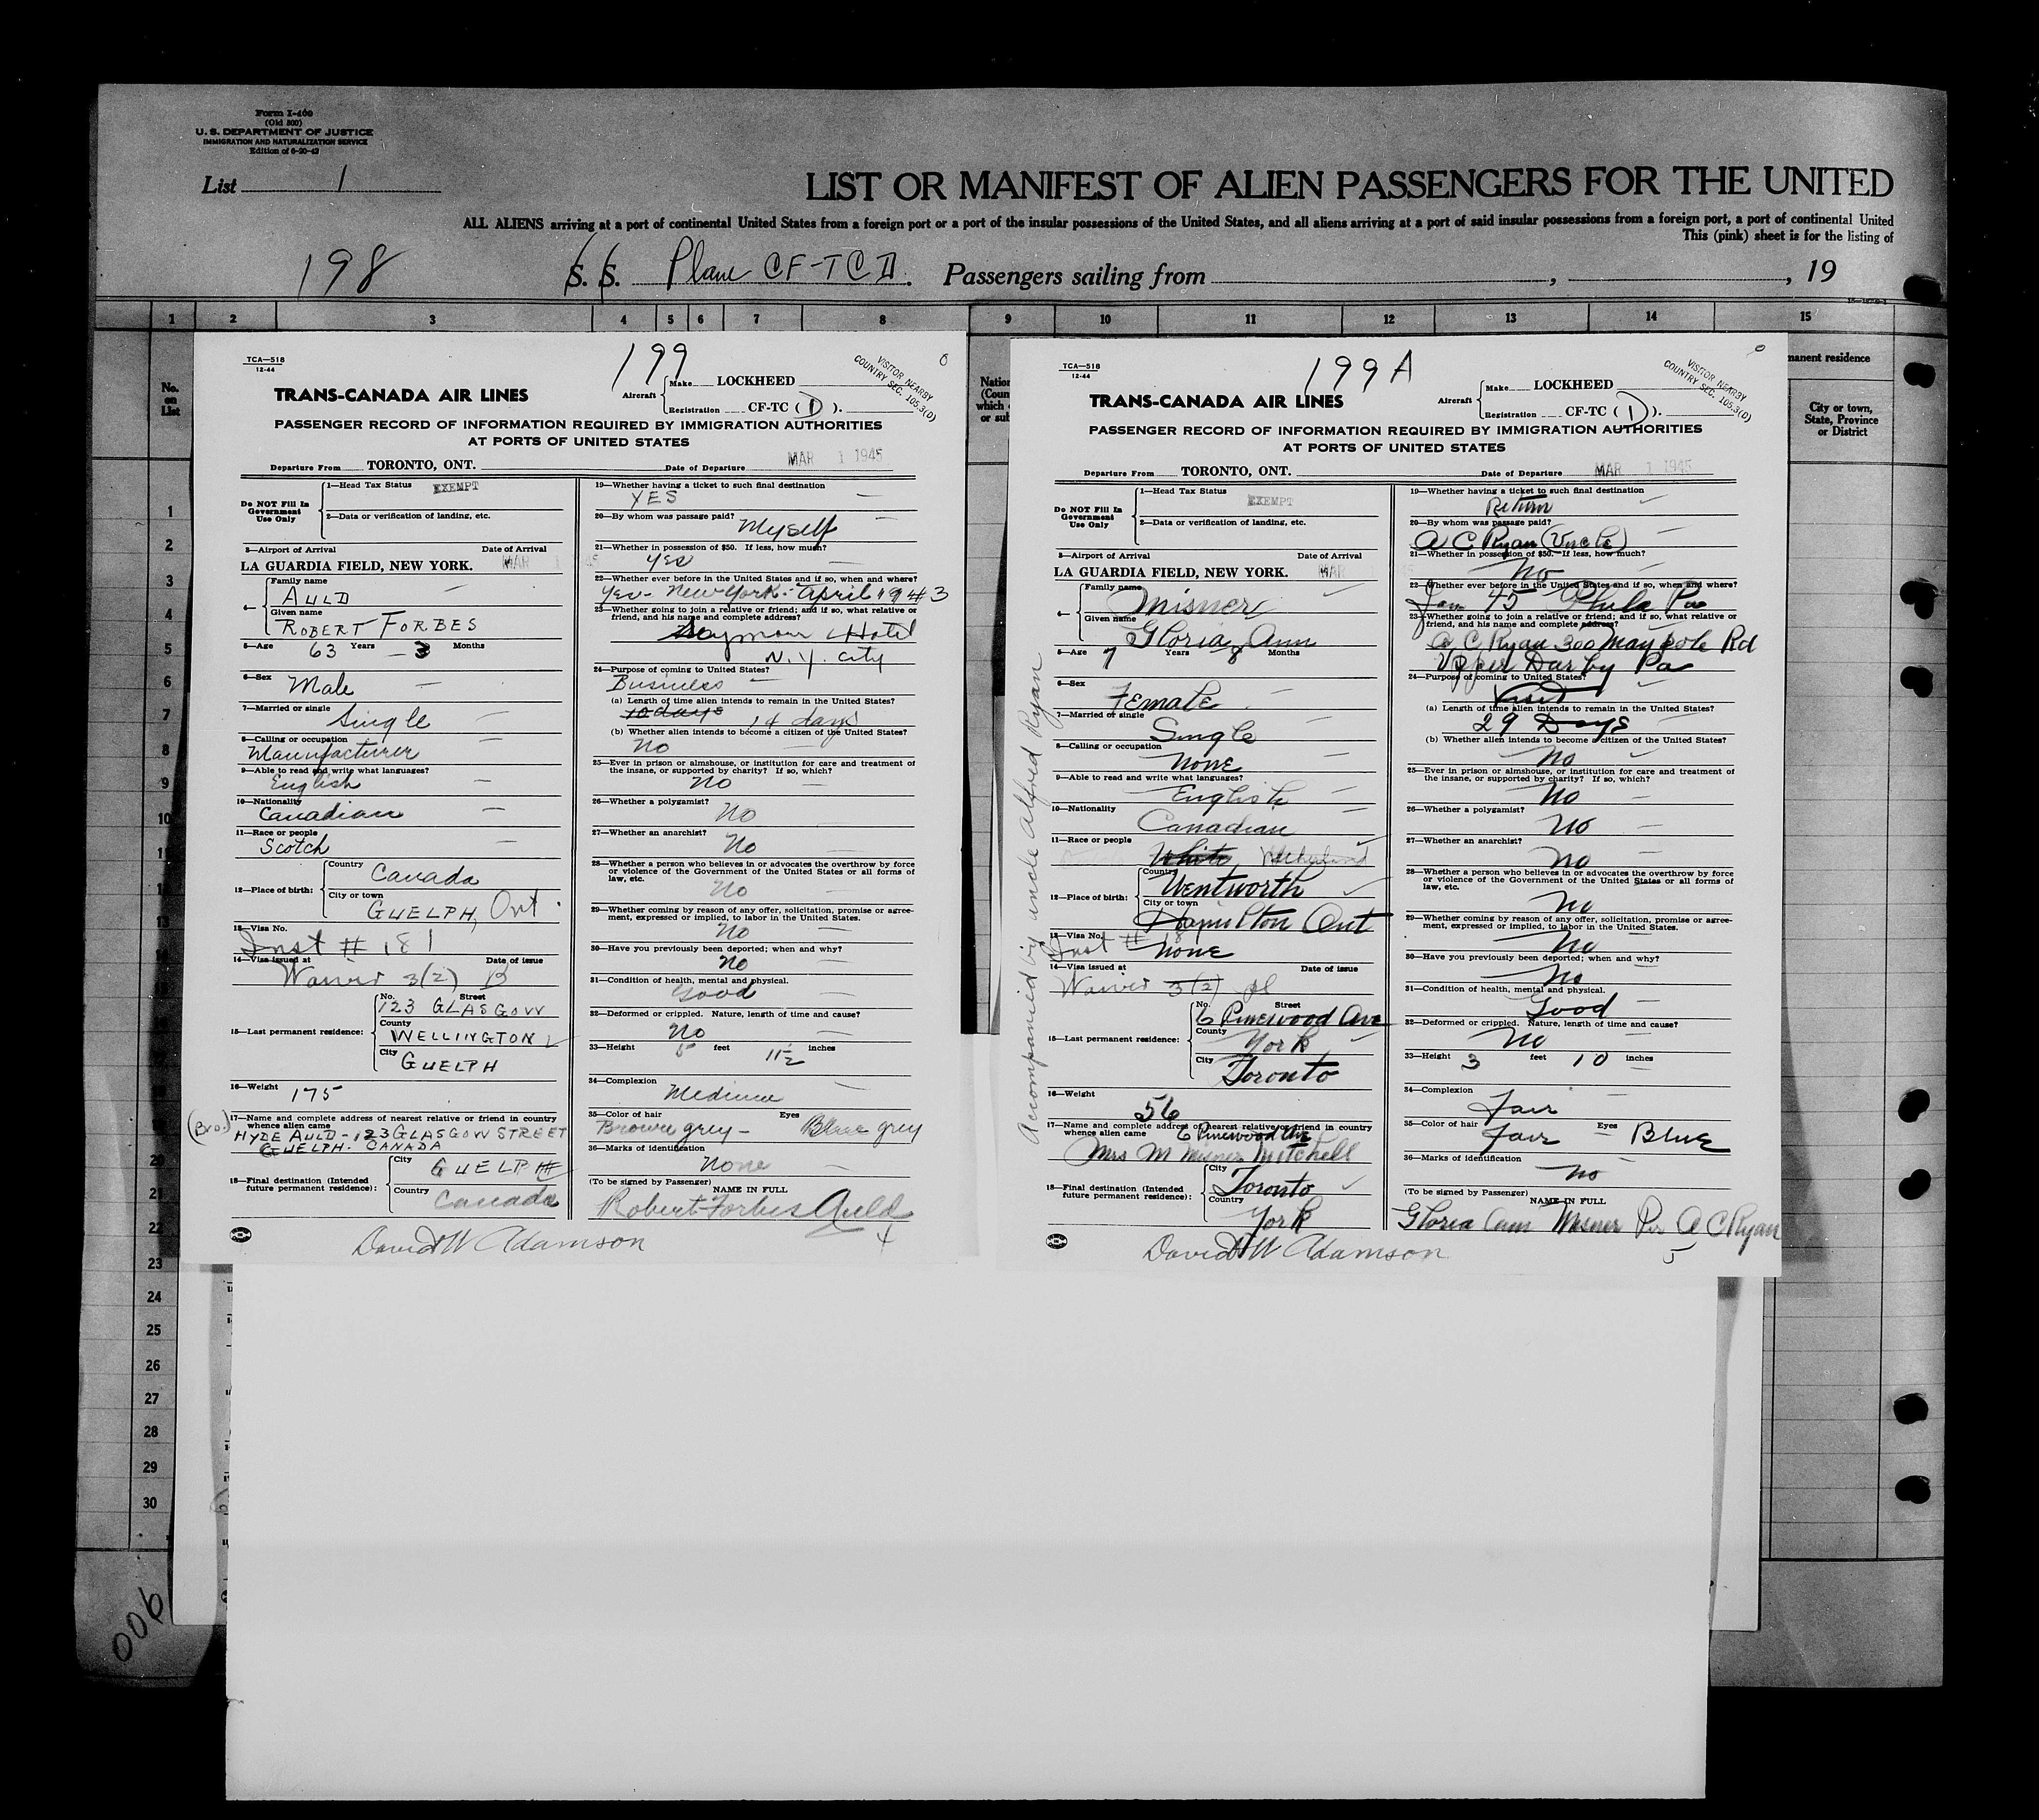 Form I-400
(Old 500)
U. S. DEPARTMENT OF JUSTICE
IMMIGRATION AND NATURALIZATION SERVICE
Edition of 6-20-43
List 1
LIST OR MANIFEST OF ALIEN PASSENGERS FOR THE UNITED
ALL ALIENS arriving at a port of continental United States from a foreign port or a port of the insular possessions of the United States, and all aliens arriving at a port of said insular possessions from a foreign port, a port of continental United
This (pink) sheet is for the listing of
198 S. S. Plane CF-TCD. Passengers sailing from , , 19
1 2 3 4 5 6 7 8 9 10 11 12 13 14 15
No. on List
manent residence
City or town, State, Province or District
TCA—518
12-44
199
VISITOR NEARBY
COUNTRY SEC. 105.3(D)
TRANS-CANADA AIR LINES
Aircraft Make LOCKHEED
Registration CF-TC ( D ).
PASSENGER RECORD OF INFORMATION REQUIRED BY IMMIGRATION AUTHORITIES
AT PORTS OF UNITED STATES
Departure From TORONTO, ONT. Date of Departure MAR 1 1945
Do NOT Fill In Government Use Only
1—Head Tax Status EXEMPT
2—Data or verification of landing, etc.
3—Airport of Arrival Date of Arrival
LA GUARDIA FIELD, NEW YORK. MAR 1
4— Family name
AULD
Given name
ROBERT FORBES
5—Age 63 Years 3 Months
6—Sex
Male
7—Married or single
Single
8—Calling or occupation
Manufacturer
9—Able to read and write what languages?
English
10—Nationality
Canadian
11—Race or people
Scotch
12—Place of birth: Country
Canada
City or town
GUELPH, Ont.
13—Visa No.
Inst # 181
14—Visa issued at Date of issue
Waiver 3(2) B
15—Last permanent residence: No. Street
123 GLASGOW
County
WELLINGTON
City
GUELPH
16—Weight 175
17—Name and complete address of nearest relative or friend in country whence alien came
(Bro.) HYDE AULD - 123 GLASGOW STREET
GUELPH. CANADA
18—Final destination (Intended future permanent residence): City
GUELPH
Country
Canada
19—Whether having a ticket to such final destination
YES
20—By whom was passage paid?
Myself
21—Whether in possession of $50. If less, how much?
yes
22—Whether ever before in the United States and if so, when and where?
Yes - New York - April 1943
23—Whether going to join a relative or friend; and if so, what relative or friend, and his name and complete address?
Seymour Hotel
N.Y. City
24—Purpose of coming to United States?
Business
(a) Length of time alien intends to remain in the United States?
10 days 14 days
(b) Whether alien intends to become a citizen of the United States?
No
25—Ever in prison or almshouse, or institution for care and treatment of the insane, or supported by charity? If so, which?
No
26—Whether a polygamist?
No
27—Whether an anarchist?
No
28—Whether a person who believes in or advocates the overthrow by force or violence of the Government of the United States or all forms of law, etc.
No
29—Whether coming by reason of any offer, solicitation, promise or agreement, expressed or implied, to labor in the United States.
No
30—Have you previously been deported; when and why?
No
31—Condition of health, mental and physical.
Good
32—Deformed or crippled. Nature, length of time and cause?
No
33—Height 5 feet 11½ inches
34—Complexion
Medium
35—Color of hair Eyes
Brown grey - Blue grey
36—Marks of identification
None
(To be signed by Passenger) NAME IN FULL
Robert Forbes Auld
David W Adamson
4
TCA—518
12-44
199A
VISITOR NEARBY
COUNTRY SEC. 105.3(D)
TRANS-CANADA AIR LINES
Aircraft Make LOCKHEED
Registration CF-TC ( D ).
PASSENGER RECORD OF INFORMATION REQUIRED BY IMMIGRATION AUTHORITIES
AT PORTS OF UNITED STATES
Departure From TORONTO, ONT. Date of Departure MAR 1 1945
Do NOT Fill In Government Use Only
1—Head Tax Status EXEMPT
2—Data or verification of landing, etc.
3—Airport of Arrival Date of Arrival
LA GUARDIA FIELD, NEW YORK. MAR
4— Family name
Misner
Given name
Gloria Ann
5—Age 7 Years 8 Months
6—Sex
Female
7—Married or single
Single
8—Calling or occupation
None
9—Able to read and write what languages?
English
10—Nationality
Canadian
11—Race or people
White
12—Place of birth: Country
Wentworth
City or town
Hamilton Ont
13—Visa No.
Inst # 18 None
14—Visa issued at Date of issue
Waiver 3(2)
15—Last permanent residence: No. Street
6 Pinewood Ave
County
York
City
Toronto
16—Weight
56
17—Name and complete address of nearest relative or friend in country whence alien came
6 Pinewood Ave
Mrs M Misner Mitchell
18—Final destination (Intended future permanent residence): City
Toronto
Country
York
19—Whether having a ticket to such final destination
Return
20—By whom was passage paid?
A C Ryan (Uncle)
21—Whether in possession of $50. If less, how much?
No
22—Whether ever before in the United States and if so, when and where?
Jan 45 Phila Pa
23—Whether going to join a relative or friend; and if so, what relative or friend, and his name and complete address?
A C Ryan 300 Maypole Rd
Upper Darby Pa
24—Purpose of coming to United States?
Visit
(a) Length of time alien intends to remain in the United States?
29 Days
(b) Whether alien intends to become a citizen of the United States?
No
25—Ever in prison or almshouse, or institution for care and treatment of the insane, or supported by charity? If so, which?
No
26—Whether a polygamist?
No
27—Whether an anarchist?
No
28—Whether a person who believes in or advocates the overthrow by force or violence of the Government of the United States or all forms of law, etc.
No
29—Whether coming by reason of any offer, solicitation, promise or agreement, expressed or implied, to labor in the United States.
No
30—Have you previously been deported; when and why?
No
31—Condition of health, mental and physical.
Good
32—Deformed or crippled. Nature, length of time and cause?
No
33—Height 3 feet 10 inches
34—Complexion
Fair
35—Color of hair Eyes
Fair - Blue
36—Marks of identification
No
(To be signed by Passenger) NAME IN FULL
Gloria Ann Misner Per A C Ryan
David W Adamson
5
Accompanied by uncle Alfred Ryan
1
2
3
4
5
6
7
8
9
10
11
12
13
14
20
21
22
23
24
25
26
27
28
29
30
006